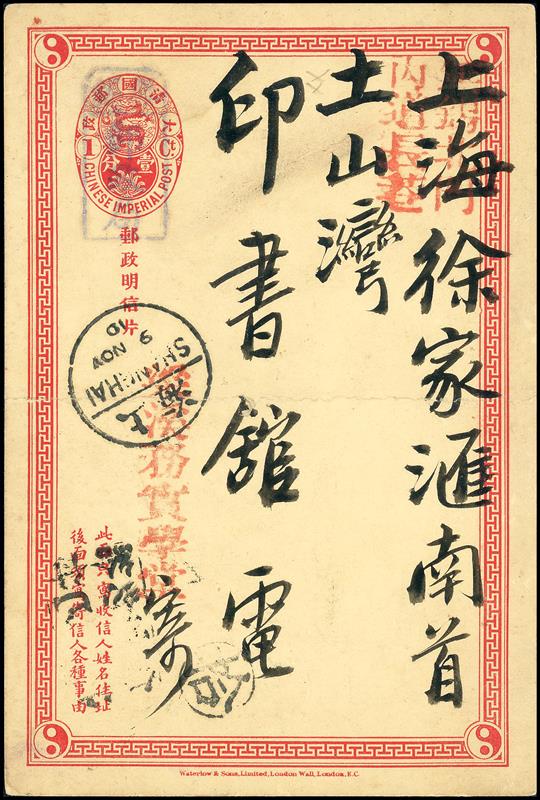 上海徐家滙南首
土山灣
印書舘電
大清國郵政
1 Ct.
壹分
CHINESE IMPERIAL POST
郵政明信片
9 NOV
SHANGHAI
上海
務實學堂
此面只寫收信人姓名住址
後面可寫寄信人各種事由
Waterlow & Sons, Limited, London Wall, London, E.C.